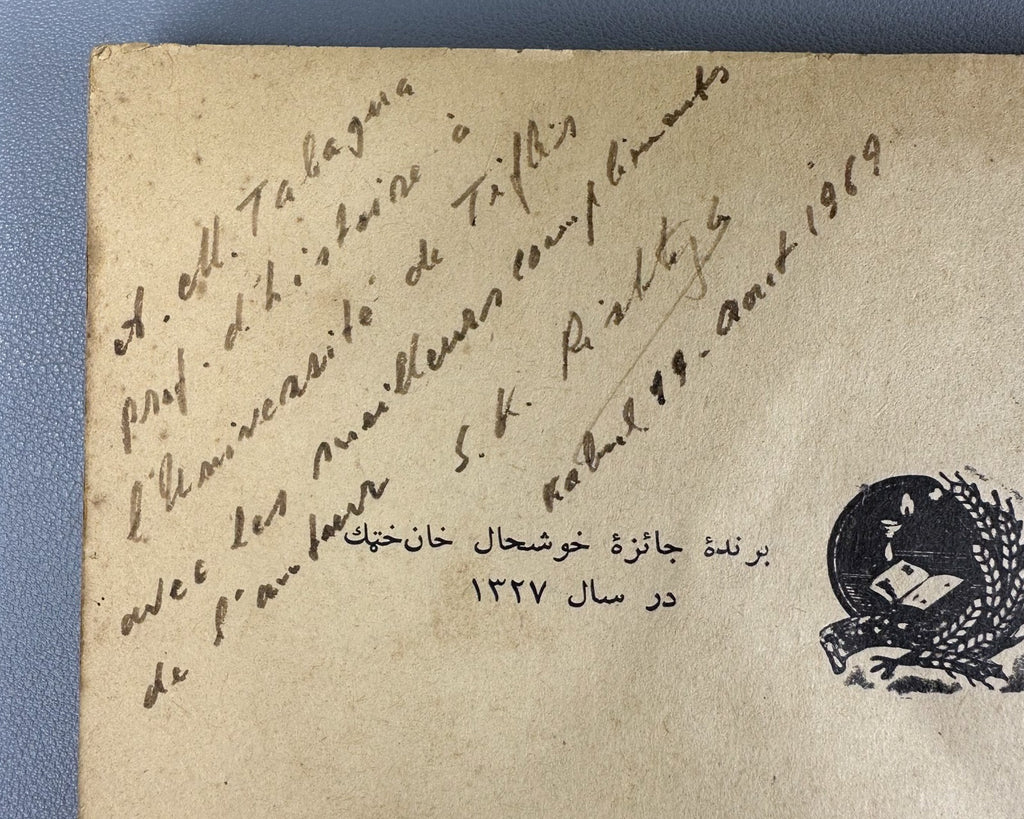 A. M. Tabagua
prof. d'histoire à
l'Université de Tiflis
avec les meilleurs compliments
de l'auteur S. K. Rishtya
Kabul 19-aout 1969
برندهٔ جائزهٔ خوشحال خان‌خټك
در سال ۱۳۲۷